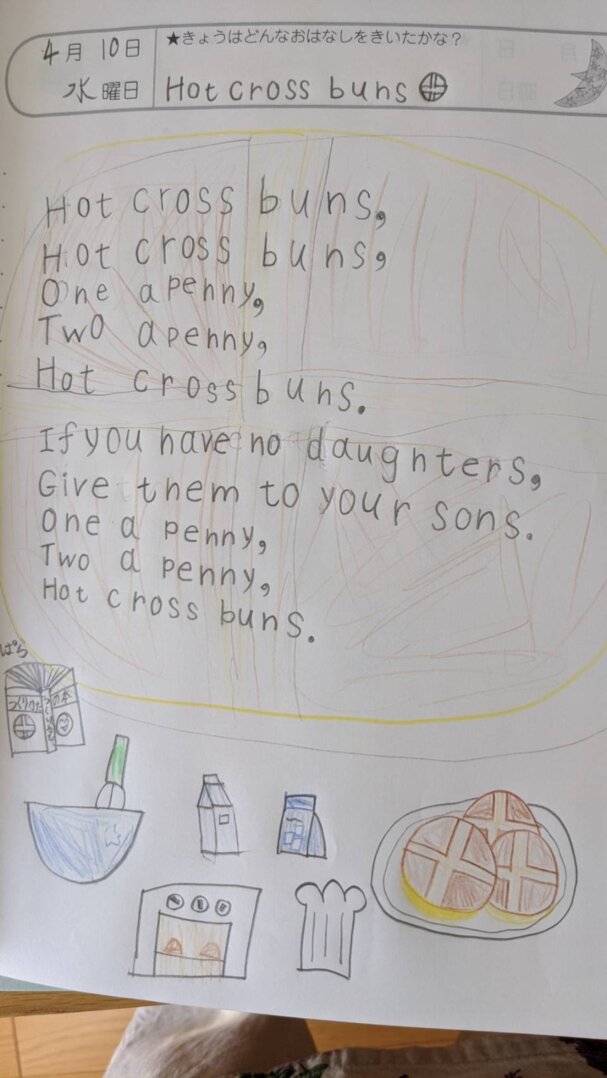 4月10日
★きょうはどんなおはなしをきいたかな?
水曜日
Hot cross buns
Hot cross buns,
Hot cross buns,
One a penny,
Two a penny,
Hot cross buns.
If you have no daughters,
Give them to your sons.
One a penny,
Two a penny,
Hot cross buns.
ぱら
つくりかた
の本